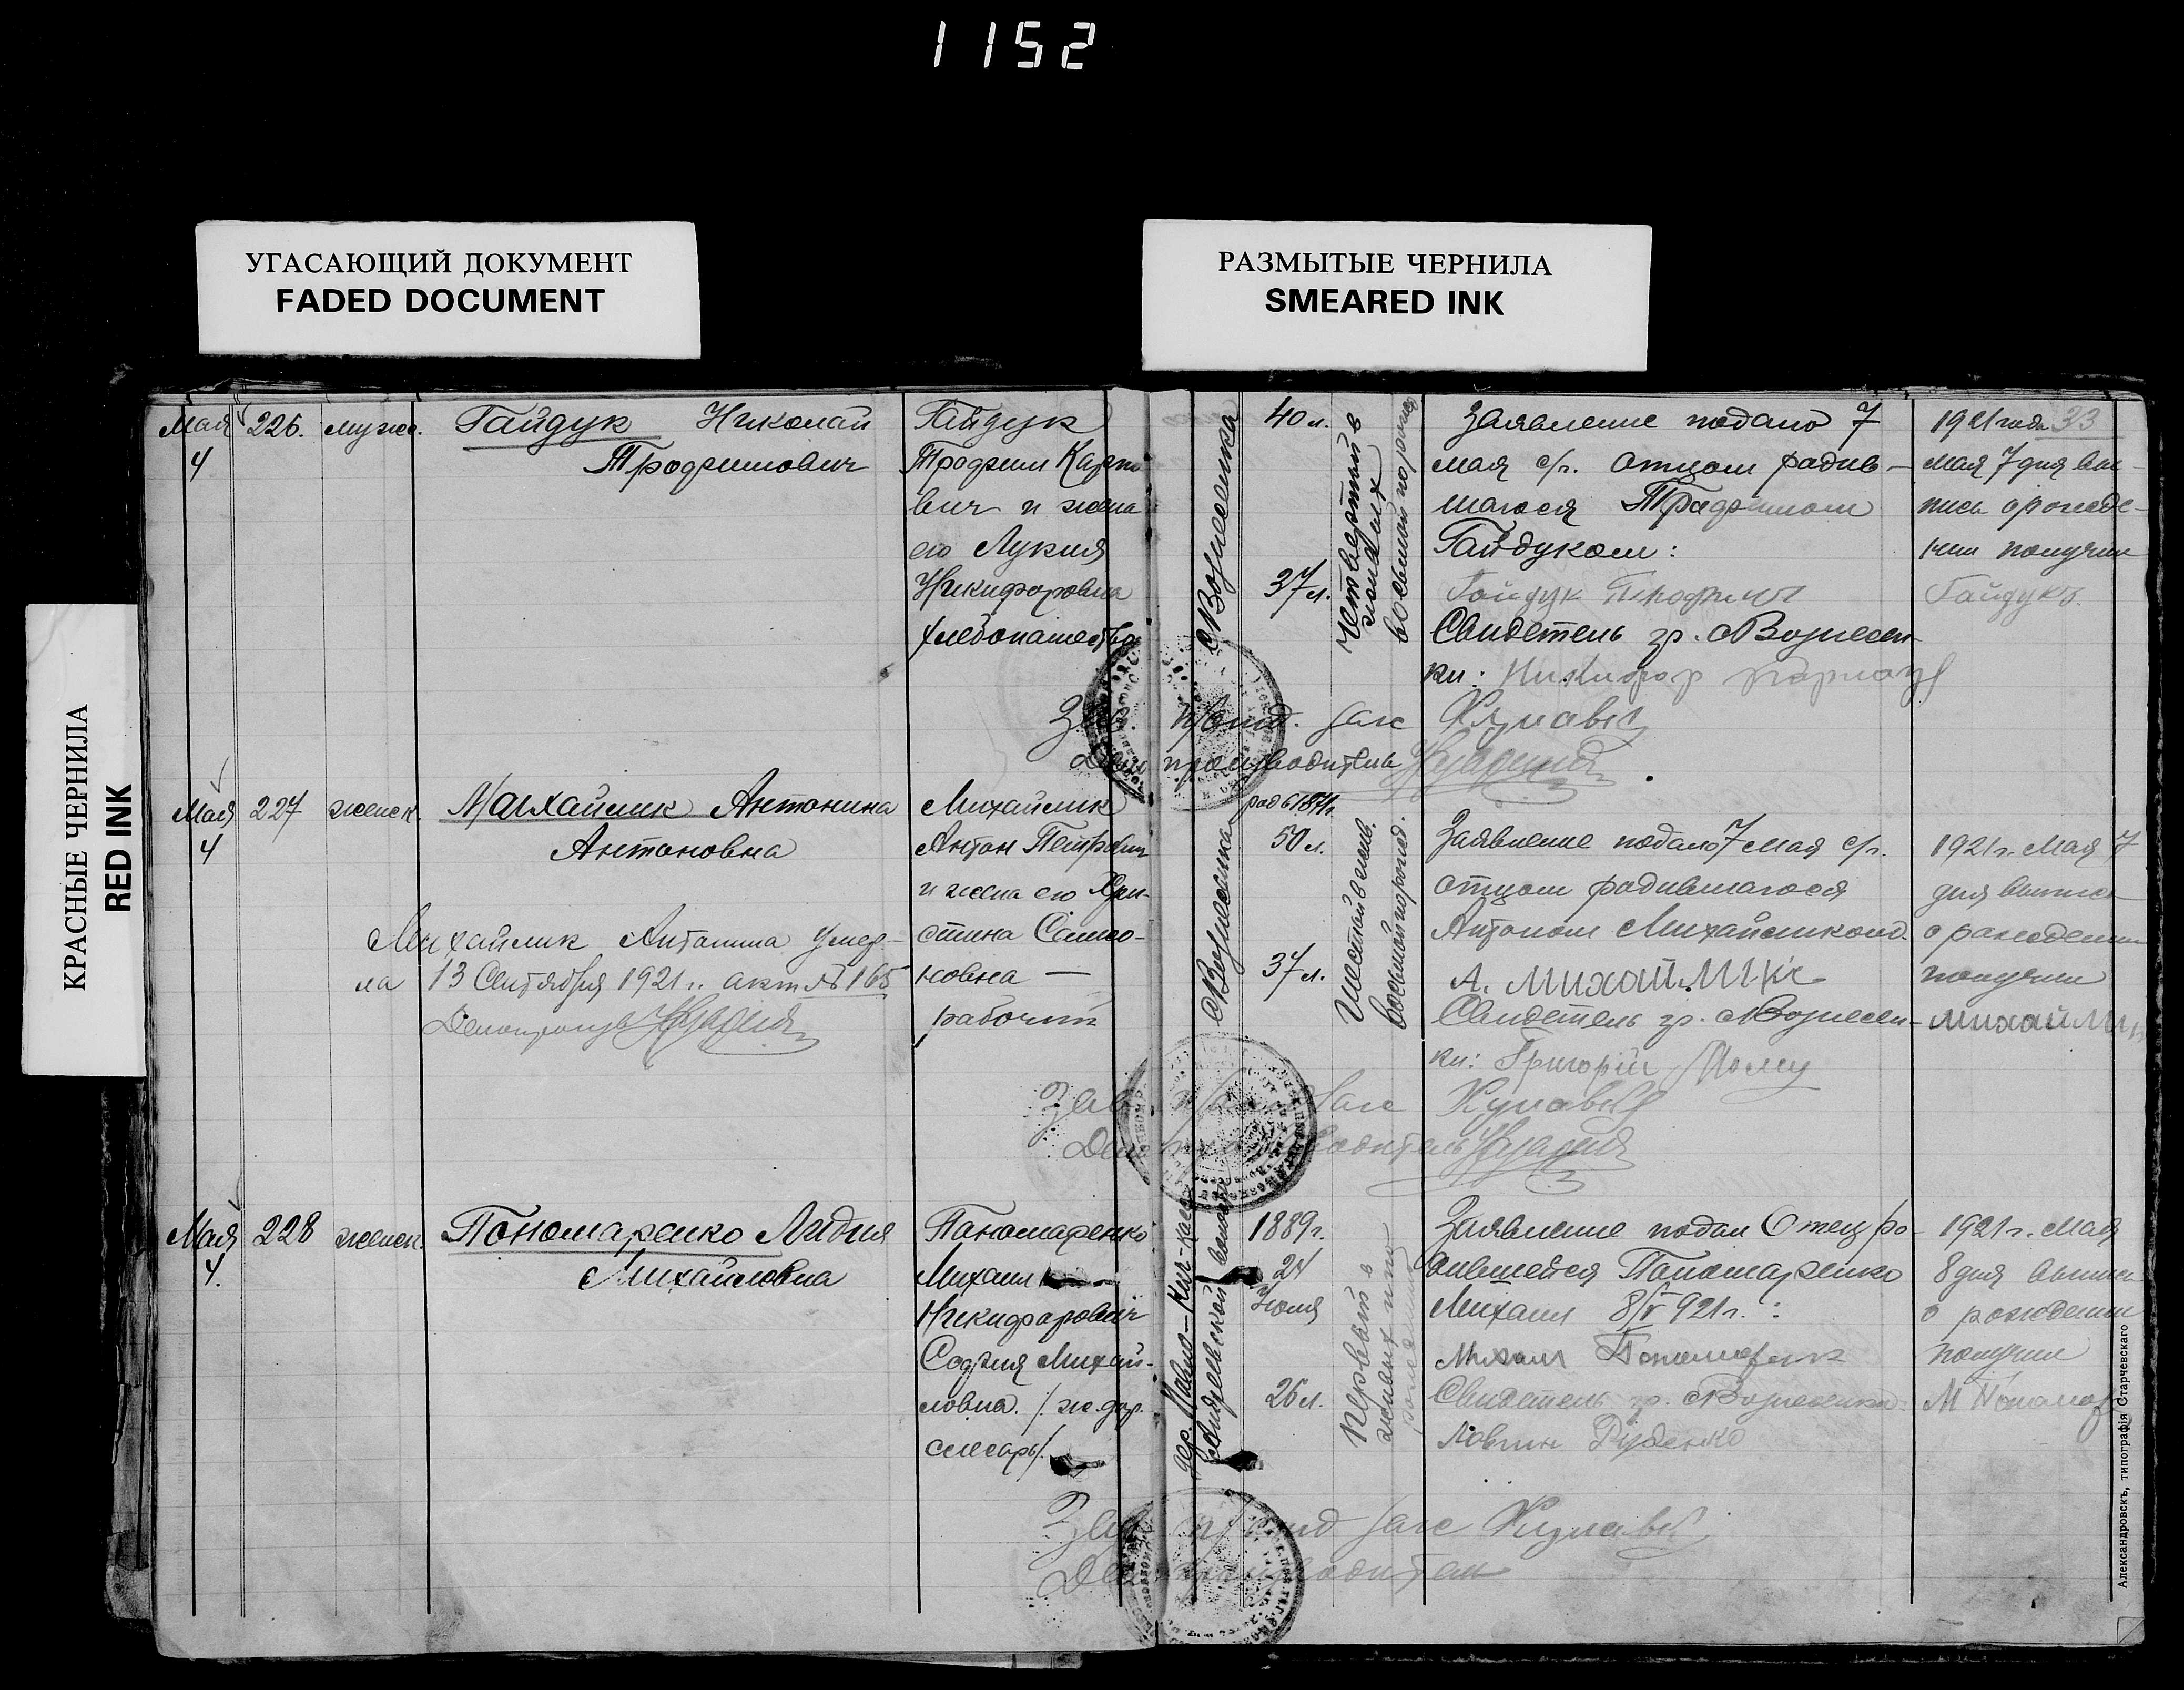 1152
УГАСАЮЩИЙ ДОКУМЕНТ
FADED DOCUMENT
РАЗМЫТЫЕ ЧЕРНИЛА
SMEARED INK
КРАСНЫЕ ЧЕРНИЛА
RED INK
33
Мая 4
226.
мужс.
Гайдук Николай
Трофимович
Гайдук
Трофим Карпо
вич и жена
его Лукия
Никифоровна
хлебопашество
с Вознесенка
40 л.
37 л.
Четвертый в
живых
восьмой по рожд
Заявление подано 7
мая с/г. отцом родив-
шагося Трофимом
Гайдуком:
Гайдук Трофим
Свидетель гр. с Вознесен-
ки: Никифор
1921 года
мая 7 дня вы-
пись о рожде-
нии получил
Гайдук
Зав. п/отд. загс
Делопроизводитель
Мая 4
227
женск.
Михайлик Антонина
Антоновна
Михайлик Антонина умер-
ла 13 Сентября 1921 г. акт № 165
Михайлик
Антон Петрович
и жена его Хри-
стина Самсо-
новна —
рабочий
с Вознесенка
род 1871 г.
50 л.
37 л.
Шестой в жив.
восьмой по рожд.
Заявление подано 7 мая с/г.
отцом родившагося
Антоном Михайликом.
А. Михайлик
Свидетель гр. с Вознесен-
ки: Григорій
1921 г. Мая 7
дня выпись
о рождении
получил
Михайлик
Зав. п/отд. загс
Делопроизводитель
Мая 4.
228
женск.
Пономаренко Лидия
Михайловна
Пономаренко
Михаил
Никифорович
София Михай-
ловна. /ж. дор.
слесарь/.
дер. Павло-Кич-кас
волости
1889 г.
24
Июля
26 л.
Первый в
живых и по
рождению
Заявление подал Отец ро-
дившейся Пономаренко
Михаил 8/V 921 г.:
Михаил Пономаренко
Свидетель гр. с Вознесенки
Логвин Руденко
1921 г. Мая
8 дня выпись
о рождении
получил
М Пономар
Зав. п/отд загс
Делопроизводитель
Александровскъ, типографія Старчевскаго